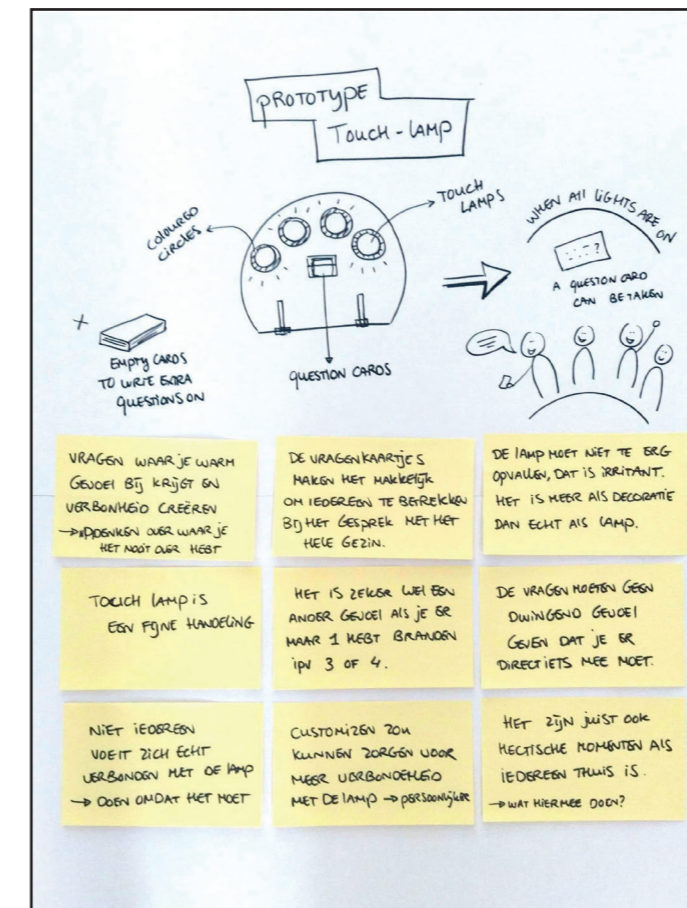 PROTOTYPE
TOUCH-LAMP
COLOURED
CIRCLES
TOUCH
LAMPS
WHEN All LIGHTS ARE ON
?
A QUESTION CARD
CAN BE TAKEN
+
EMPTY CARDS
TO WRITE EXTRA
QUESTIONS ON
QUESTION CARDS
VRAGEN WAAR JE WARM
GEVOEL BIJ KRIJGT EN
VERBONHEID CREËREN
→ NADENKEN OVER WAAR JE
HET NOOIT OVER HEBT
DE VRAGENKAARTJES
MAKEN HET MAKKELIJK
OM IEDEREEN TE BETREKKEN
BIJ HET GESPREK MET HET
HELE GEZIN.
DE LAMP MOET NIET TE ERG
OPVALLEN, DAT IS IRRITANT.
HET IS MEER ALS DECORATIE
DAN ECHT ALS LAMP.
TOUCH LAMP IS
EEN FIJNE HANDELING
HET IS ZEKER WEL EEN
ANDER GEVOEL ALS JE ER
MAAR 1 HEBT BRANDEN
IPV 3 OF 4.
DE VRAGEN MOETEN GEEN
DWINGEND GEVOEL
GEVEN DAT JE ER
DIRECT IETS MEE MOET.
NIET IEDEREEN
VOELT ZICH ECHT
VERBONDEN MET DE LAMP
→ DOEN OMDAT HET MOET
CUSTOMIZEN ZOU
KUNNEN ZORGEN VOOR
MEER VERBONDENHEID
MET DE LAMP → PERSOONLIJKER
HET ZIJN JUIST OOK
HECTISCHE MOMENTEN ALS
IEDEREEN THUIS IS.
→ WAT HIERMEE DOEN?